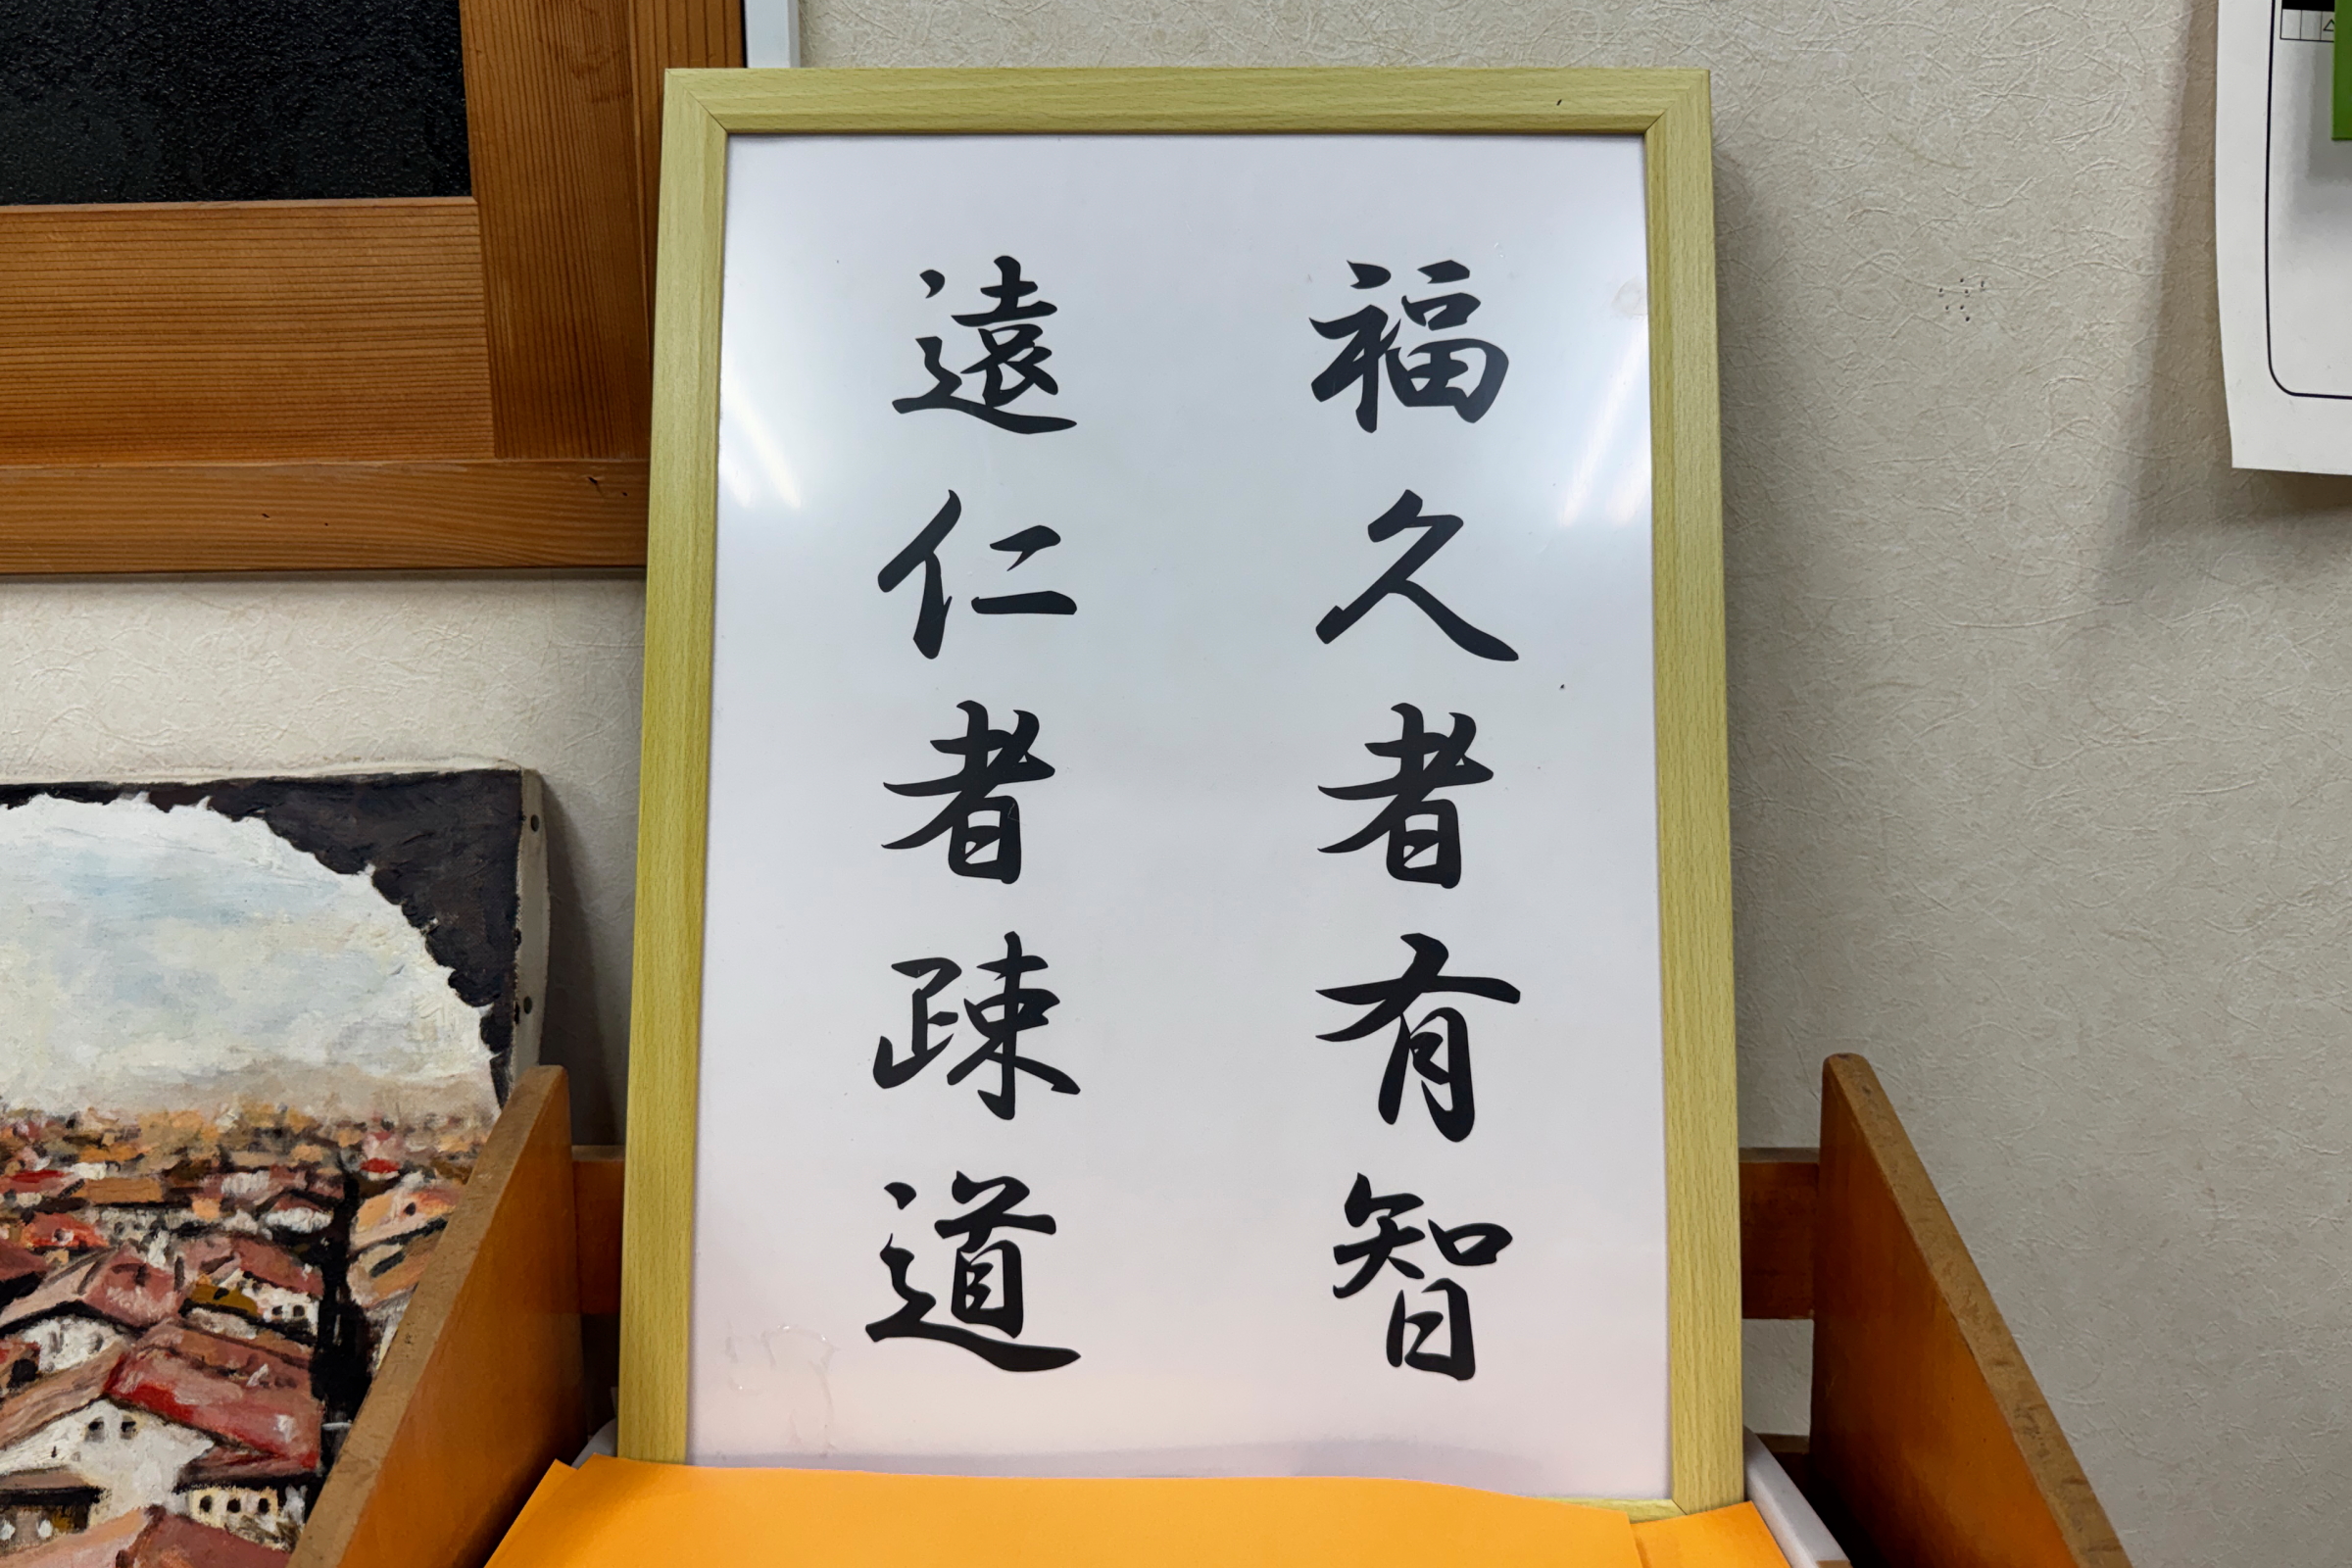 福久者有智
遠仁者疎道